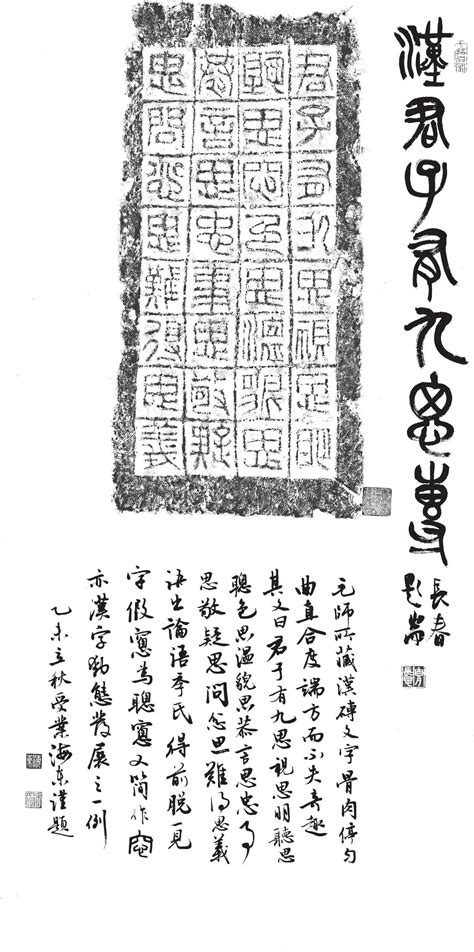 漢君子有九思專
長春題耑
君子有九思視思明
聽思窓色思溫貌思
恭言思忠事思敬疑
思問忿思難得思義
元師所藏漢磚文字骨肉停勻
曲直合度端方而不失奇趣
其文曰君子有九思視思明聽思
聰色思溫貌思恭言思忠事
思敬疑思問忿思難得思義
語出論語季氏得前脱一見
字假窻為聰窻又簡作
亦漢字動態發展之一例
乙未立秋受業海東謹題